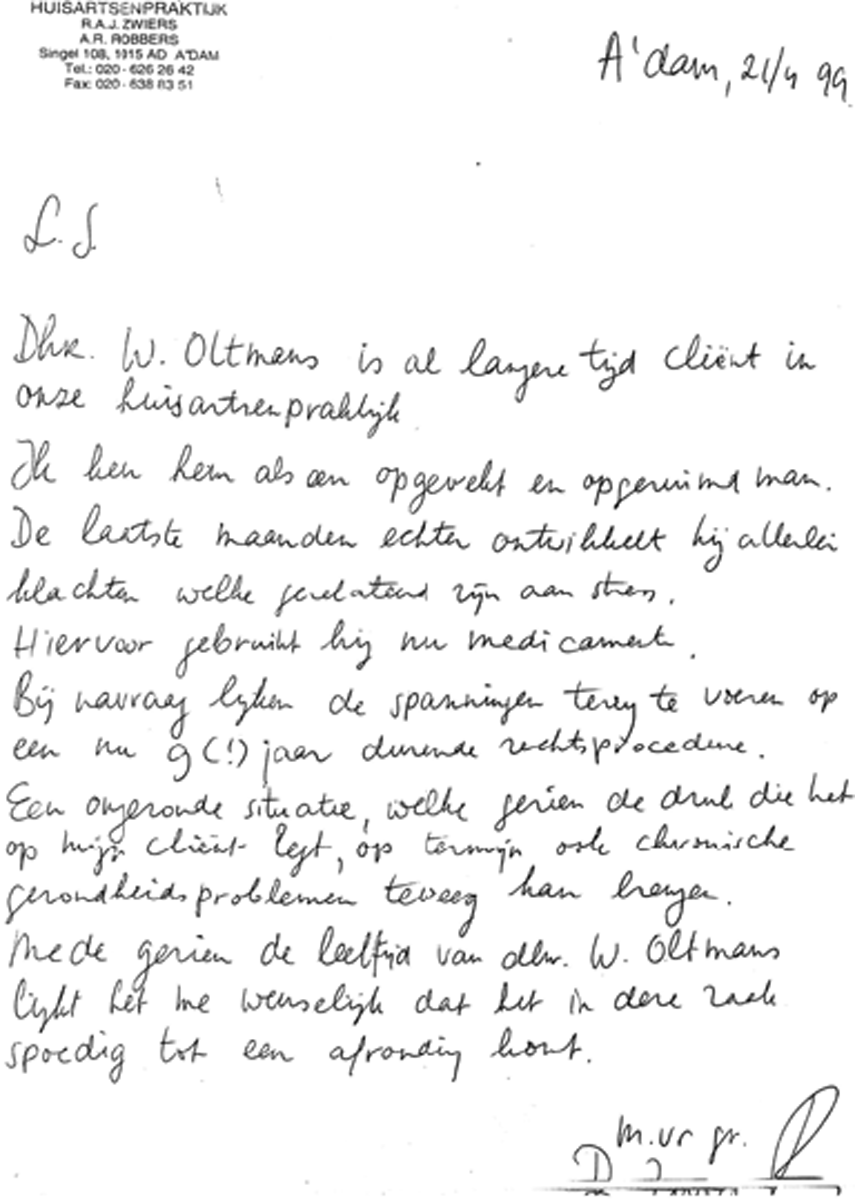 HUISARTSENPRAKTIJK
R.A.J. ZWIERS
A.R. ROBBERS
Singel 108, 1015 AD A'DAM
Tel.: 020 - 626 26 42
Fax: 020 - 638 83 51
A'dam, 21/4 99
L.S.
Dhr. W. Oltmans is al langere tijd cliënt in
onze huisartsenpraktijk.
Ik ken hem als een opgewekt en opgeruimd man.
De laatste maanden echter ontwikkelt hij allerlei
klachten welke gerelateerd zijn aan stress.
Hiervoor gebruikt hij nu medicamenten.
Bij navraag lijken de spanningen terug te voeren op
een nu 9(!) jaar durende rechtsprocedure.
Een ongezonde situatie, welke gezien de druk die het
op mijn cliënt legt, op termijn ook chronische
gezondheidsproblemen teweeg kan brengen.
Mede gezien de leeftijd van dhr. W. Oltmans
lijkt het me wenselijk dat het in deze zaak
spoedig tot een afronding komt.
m.vr gr.